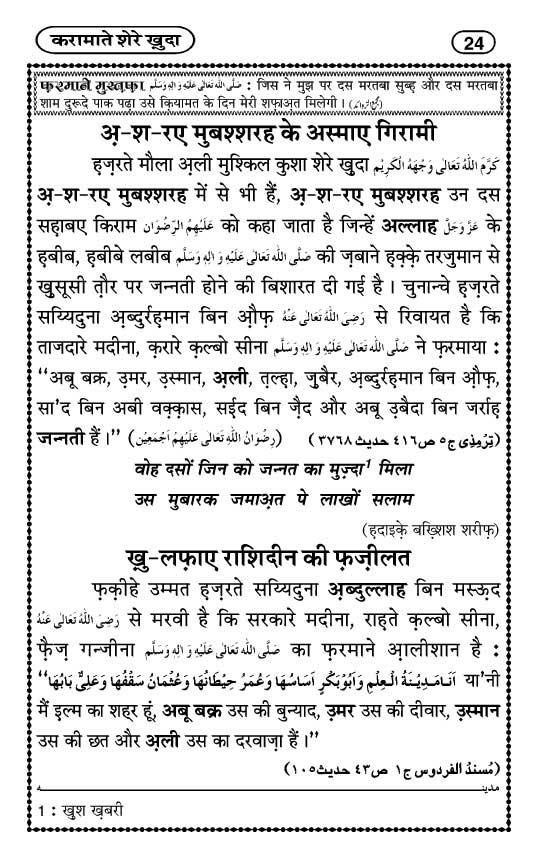 करामाते शेरे ख़ुदा
24
फ़रमाने मुस्तफ़ा صَلَّى اللّٰهُ تَعَالٰى عَلَيْهِ وَاٰلِهٖ وَسَلَّم : जिस ने मुझ पर दस मरतबा सुब्ह और दस मरतबा
शाम दुरूदे पाक पढ़ा उसे क़ियामत के दिन मेरी शफ़ाअ़त मिलेगी।
अ़-श-रए मुबश्शरह के अस्माए गिरामी
हज़रते मौला अ़ली मुश्किल कुशा शेरे ख़ुदा كَرَّمَ اللّٰهُ تَعَالٰى وَجْهَهُ الْكَرِيْم
अ़-श-रए मुबश्शरह में से भी हैं, अ़-श-रए मुबश्शरह उन दस
सहाबए किराम عَلَيْهِمُ الرِّضْوَان को कहा जाता है जिन्हें अल्लाह عَزَّوَجَلَّ के
हबीब, हबीबे लबीब صَلَّى اللّٰهُ تَعَالٰى عَلَيْهِ وَاٰلِهٖ وَسَلَّم की ज़बाने हक़्क़े तरजुमान से
ख़ुसूसी त़ौर पर जन्नती होने की बिशारत दी गई है। चुनान्चे हज़रते
सय्यिदुना अ़ब्दुर्रहमान बिन औ़फ़ رَضِىَ اللّٰهُ تَعَالٰى عَنْهُ से रिवायत है कि
ताजदारे मदीना, क़रारे क़ल्बो सीना صَلَّى اللّٰهُ تَعَالٰى عَلَيْهِ وَاٰلِهٖ وَسَلَّم ने फ़रमाया :
“अबू बक्र, उ़मर, उ़स्मान, अ़ली, त़ल्ह़ा, ज़ुबैर, अ़ब्दुर्रहमान बिन औ़फ़,
सा'द बिन अबी वक़्क़ास, सईद बिन ज़ैद और अबू उ़बैदा बिन जर्राह़
जन्नती हैं।” (رِضْوَانُ اللّٰهِ تَعَالٰى عَلَيْهِمْ اَجْمَعِيْن) (تِرْمِذِى ج٥ ص٤١٦ حديث ٣٧٦٨)
वोह दसों जिन को जन्नत का मुज़्दा¹ मिला
उस मुबारक जमाअ़त पे लाखों सलाम
(ह़दाइक़े बख़्शिश शरीफ़)
ख़ु-लफ़ाए राशिदीन की फ़ज़ीलत
फ़क़ीहे उम्मत हज़रते सय्यिदुना अ़ब्दुल्लाह बिन मस्ऊ़द
رَضِىَ اللّٰهُ تَعَالٰى عَنْهُ से मरवी है कि सरकारे मदीना, राह़ते क़ल्बो सीना,
फ़ैज़ गन्जीना صَلَّى اللّٰهُ تَعَالٰى عَلَيْهِ وَاٰلِهٖ وَسَلَّم का फ़रमाने आ़लीशान है :
“اَنَامَدِيْنَةُ الْعِلْمِ وَاَبُوْبَكْرٍ اَسَاسُهَا وَعُمَرُ حِيْطَانُهَا وَعُثْمَانُ سَقْفُهَا وَعَلِىٌّ بَابُهَا या'नी
मैं इल्म का शहर हूं, अबू बक्र उस की बुन्याद, उ़मर उस की दीवार, उ़स्मान
उस की छत और अ़ली उस का दरवाज़ा हैं।”
(مُسنَدُ الفردوس ج١ ص٤٣ حديث١٠٥)
مدينه
1 : ख़ुश ख़बरी